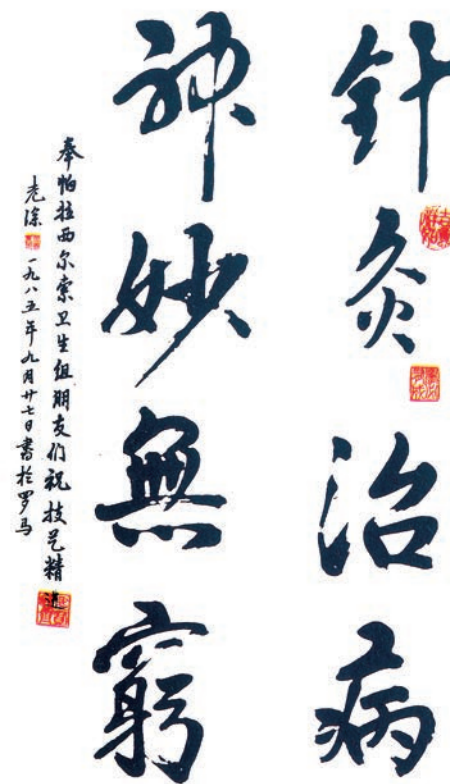 針灸治病
神妙無窮
奉帕拉西尔索卫生组朋友们祝技艺精进
一九八五年九月廿七日書於罗马